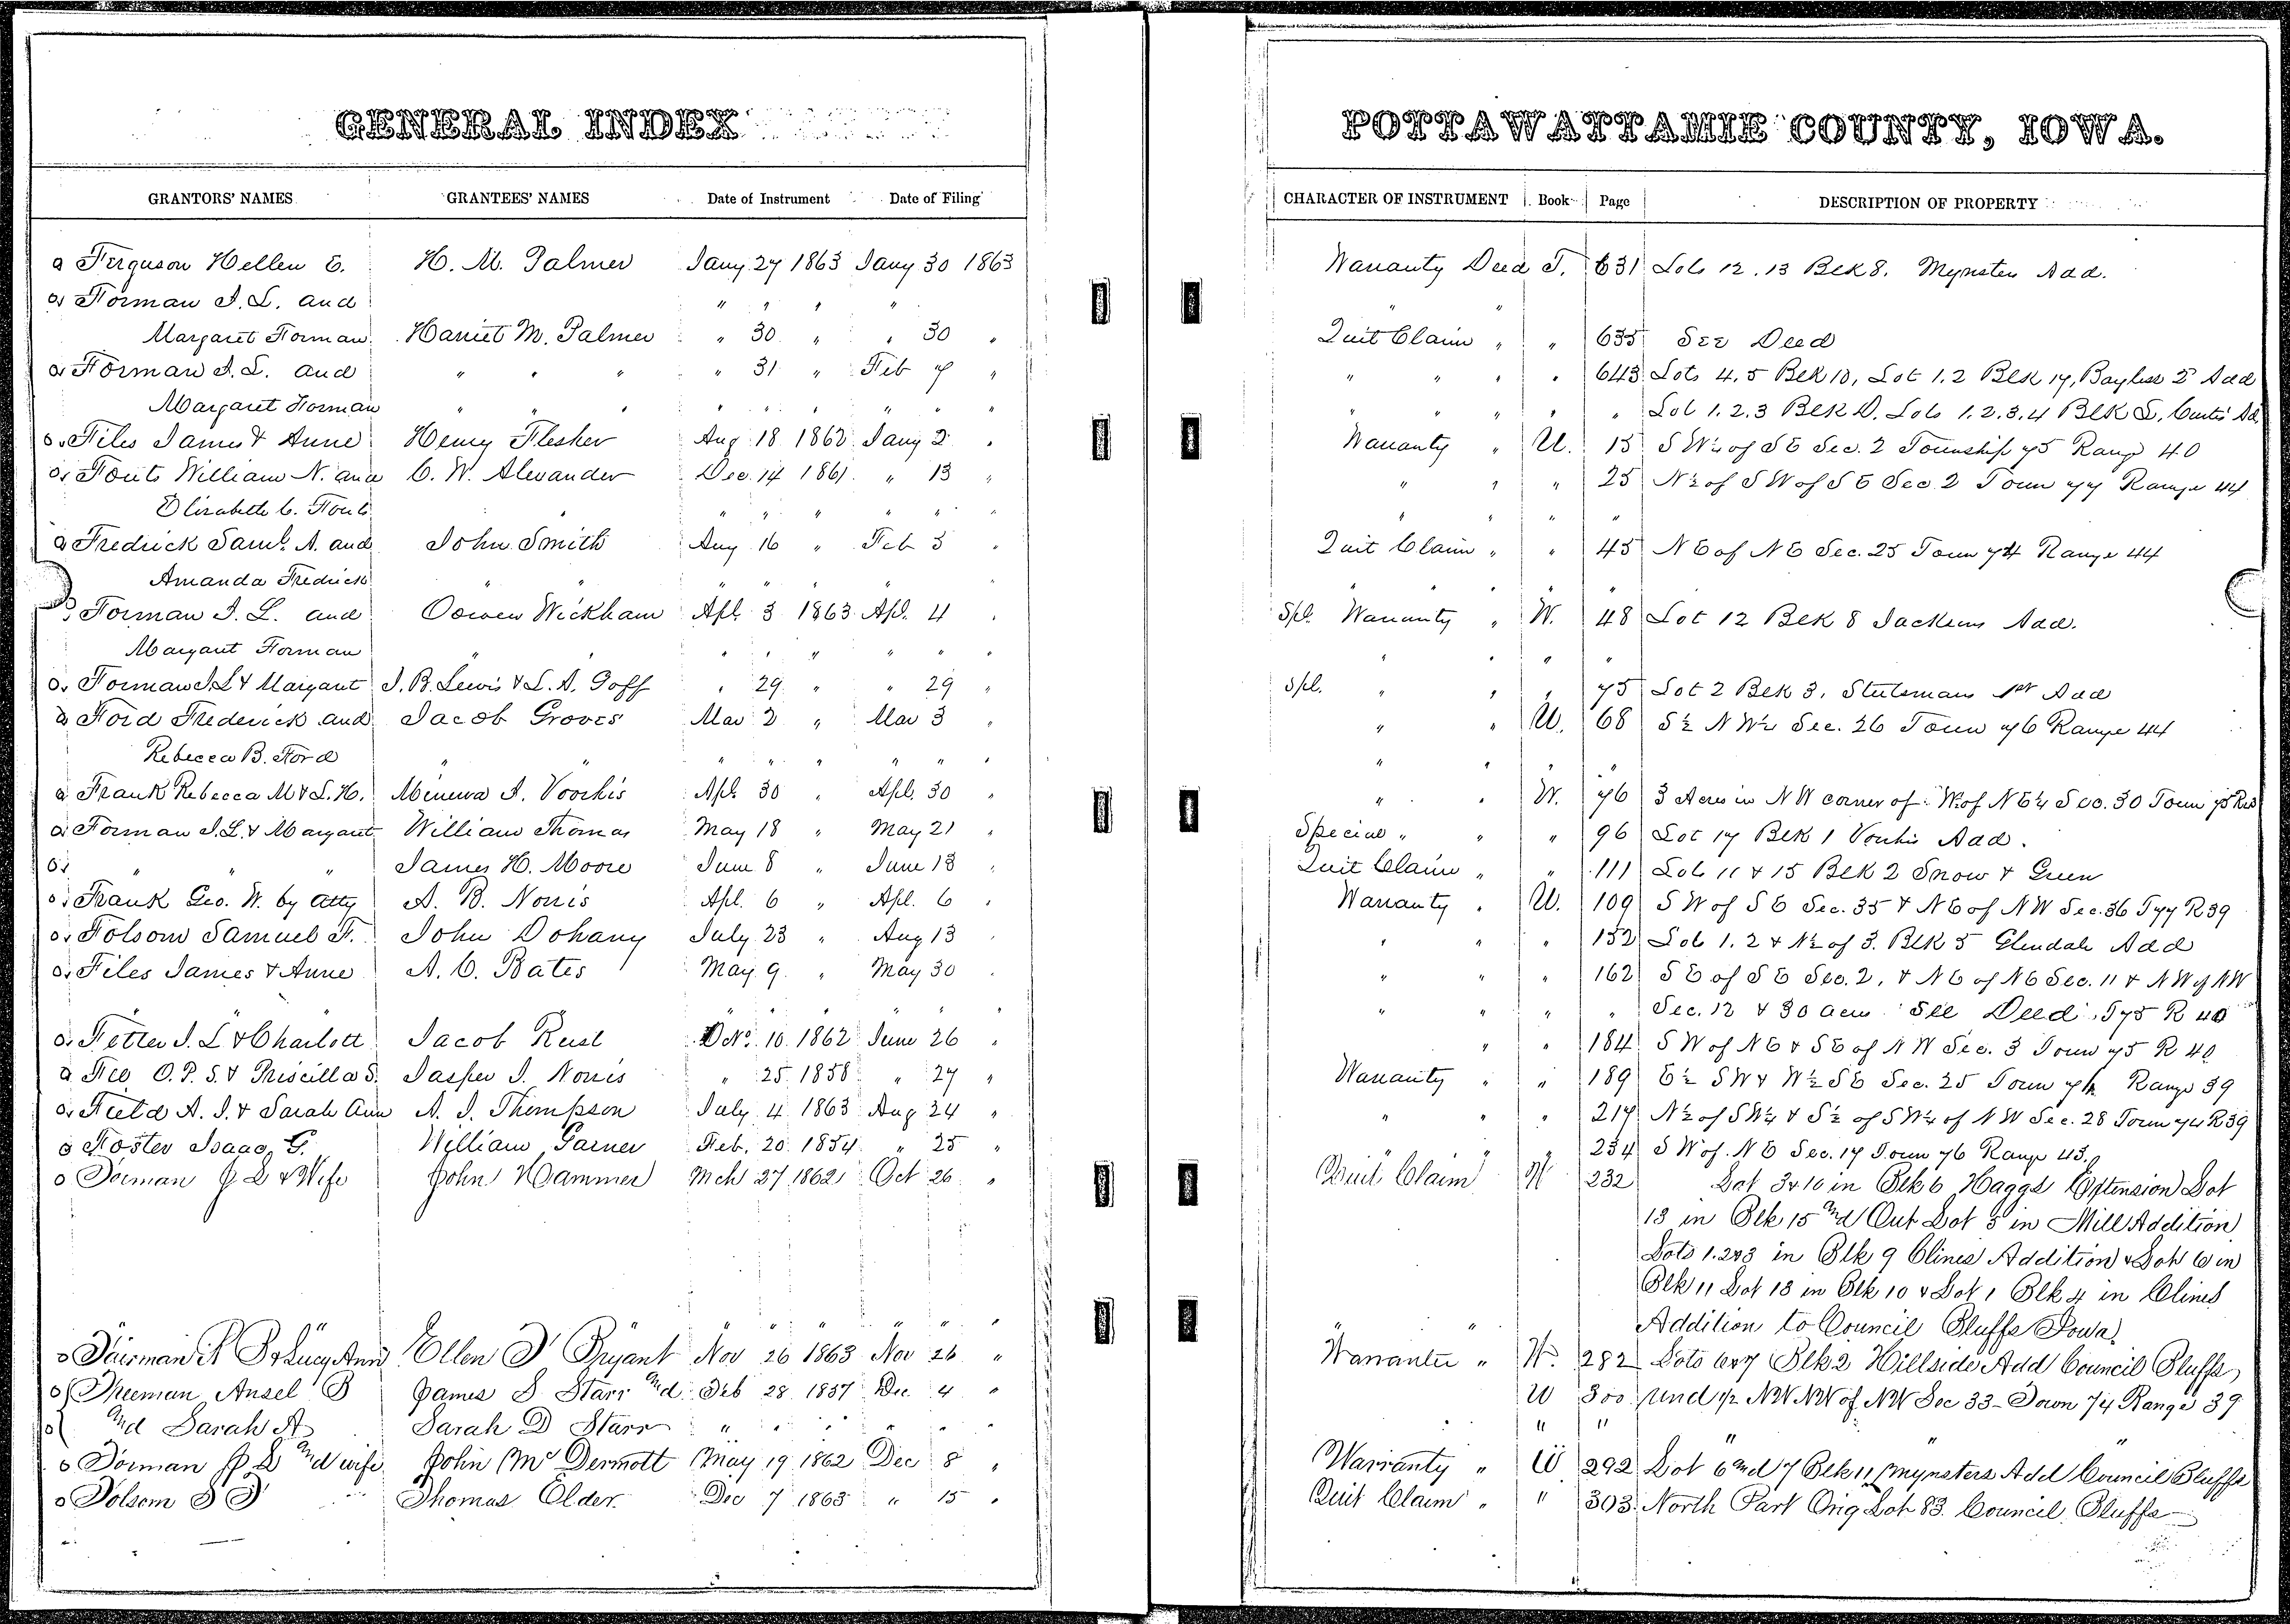 GENERAL INDEX
GRANTORS' NAMES GRANTEES' NAMES Date of Instrument Date of Filing
Ferguson Hellen E. H. M. Palmer Jany 27 1863 Jany 30 1863
Forman J. L. and " " " "
Margaret Forman Harriet M. Palmer " 30 " " 30 "
Forman J. L. and " " " " 31 " Feb 7 "
Margaret Forman " " " " " " " " "
Files James & Anne Henry Flesher Aug 18 1862 Jany 2 "
Fouts William N. and C. W. Alexander Dec. 14 1861 " 13 "
Elizabeth C. Fouts " " " " " " "
Fredrick Saml. A. and John Smith Aug 16 " Feb 5 "
Amanda Fredrick " " " " " " "
Forman J. L. and Oowen Wickham Apl. 3 1863 Apl. 4 "
Margaret Forman " " " " " " "
Forman J L & Margaret J. B. Lewis & L. A. Goff " 29 " " 29 "
Ford Frederick and Jacob Groves Mar 2 " Mar 3 "
Rebecca B. Ford " " " " " " " "
Frank Rebecca M & L. H. Minerva A. Voorhis Apl. 30 " Apl. 30 "
Forman J. L. & Margaret William Thomas May 18 " May 21 "
" " James H. Moore June 8 " June 13 "
Frank Geo. W. by Atty A. B. Norris Apl. 6 " Apl. 6 "
Folsom Samuel F. John Dohany July 23 " Aug 13 "
Files James & Anne A. C. Bates May 9 " May 30 "
" " " " " "
Fetter J. L & Charlott Jacob Rust Oct. 10 1862 June 26 "
Fee O. P. S. & Priscilla S. Jasper J. Norris " 25 1858 " 27 "
Field A. J. & Sarah Ann A. J. Thompson July 4 1863 Aug 24 "
Foster Isaac G. William Garner Feb. 20 1854 " 25 "
Forman J L & Wife John Hammer Mch 27 1862 Oct 26 "
" " " " " " "
Fairman & Lucy Ann Ellen Bryant Nov 26 1863 Nov 26 "
Freeman Ansel B James S Starr and Feb 28 1857 Dec 4 "
and Sarah A Sarah D Starr " " " " " "
Forman J L and wife John McDermott May 19 1862 Dec 8 "
Folsom S F Thomas Elder Dec 7 1863 " 15 "
POTTAWATTAMIE COUNTY, IOWA.
CHARACTER OF INSTRUMENT Book Page DESCRIPTION OF PROPERTY
Warranty Deed T. 631 Lots 12. 13 Blk 8. Mynster Add.
" " " "
Quit Claim " " 635 See Deed
" " " " 643 Lots 4. 5 Blk 10, Lot 1. 2 Blk 17, Bayliss 2d Add
" " " " " Lot 1. 2. 3 Blk D. Lots 1. 2. 3. 4 Blk L, Curtis Ad
Warranty " U. 15 S W¼ of S E Sec. 2 Township 75 Range 40
" " " 25 N½ of S W of S E Sec. 2 Town 77 Range 44
" " " "
Quit Claim " " 45 N E of N E Sec. 25 Town 74 Range 44
" " " "
Spl. Warranty " W. 48 Lot 12 Blk 8 Jacksons Add.
" " " "
Spl. " " " 75 Lot 2 Blk 3, Stutsmans 1st Add
" " U. 68 S½ N W¼ Sec. 26 Town 76 Range 44
" " " "
" " W. 76 3 Acres in N W corner of W of N E¼ Sec. 30 Town 75
Special " " " 96 Lot 17 Blk 1 Vorhis Add.
Quit Claim " " 111 Lots 11 & 15 Blk 2 Snow & Green
Warranty " U. 109 S W of S E Sec. 35 & N E of N W Sec. 36 T 77 R 39
" " " 152 Lots 1. 2 & N½ of 3. Blk 5 Glendale Add
" " " 162 S E of S E Sec. 2, & N E of N E Sec. 11 & N W of N W
" " " " Sec. 12 & 30 acres See Deed T 75 R 40
" " 184 S W of N E & S E of N W Sec. 3 Town 75 R 40
Warranty " " 189 E½ S W & W½ S E Sec. 25 Town Range 39
" " " 217 N½ of S W¼ & S½ of S W¼ of N W Sec. 28 Town 74 R 39
" " " 234 S W of N E Sec. 17 Town 76 Range 43.
Quit Claim W 232 Lot 3 & 10 in Blk 6 Haggs Extension Lot
13 in Blk 15 and Out Lot 5 in Mill Addition
Lots 1. 2 & 3 in Blk 9 Clines Addition & Lot 6 in
Blk 11 Lot 13 in Blk 10 & Lot 1 Blk 4 in Clines
" " Addition to Council Bluffs Iowa.
Warrantee " W. 282 Lots 6 & 7 Blk 2 Hillside Add Council Bluffs
U 300 Und ½ NW NW of NW Sec 33 Town 74 Range 39
" " " "
Warranty " W 292 Lot 6 and 7 Blk 11 Mynsters Add Council Bluffs
Quit Claim " " 303 North Part Orig Lot 83. Council Bluffs